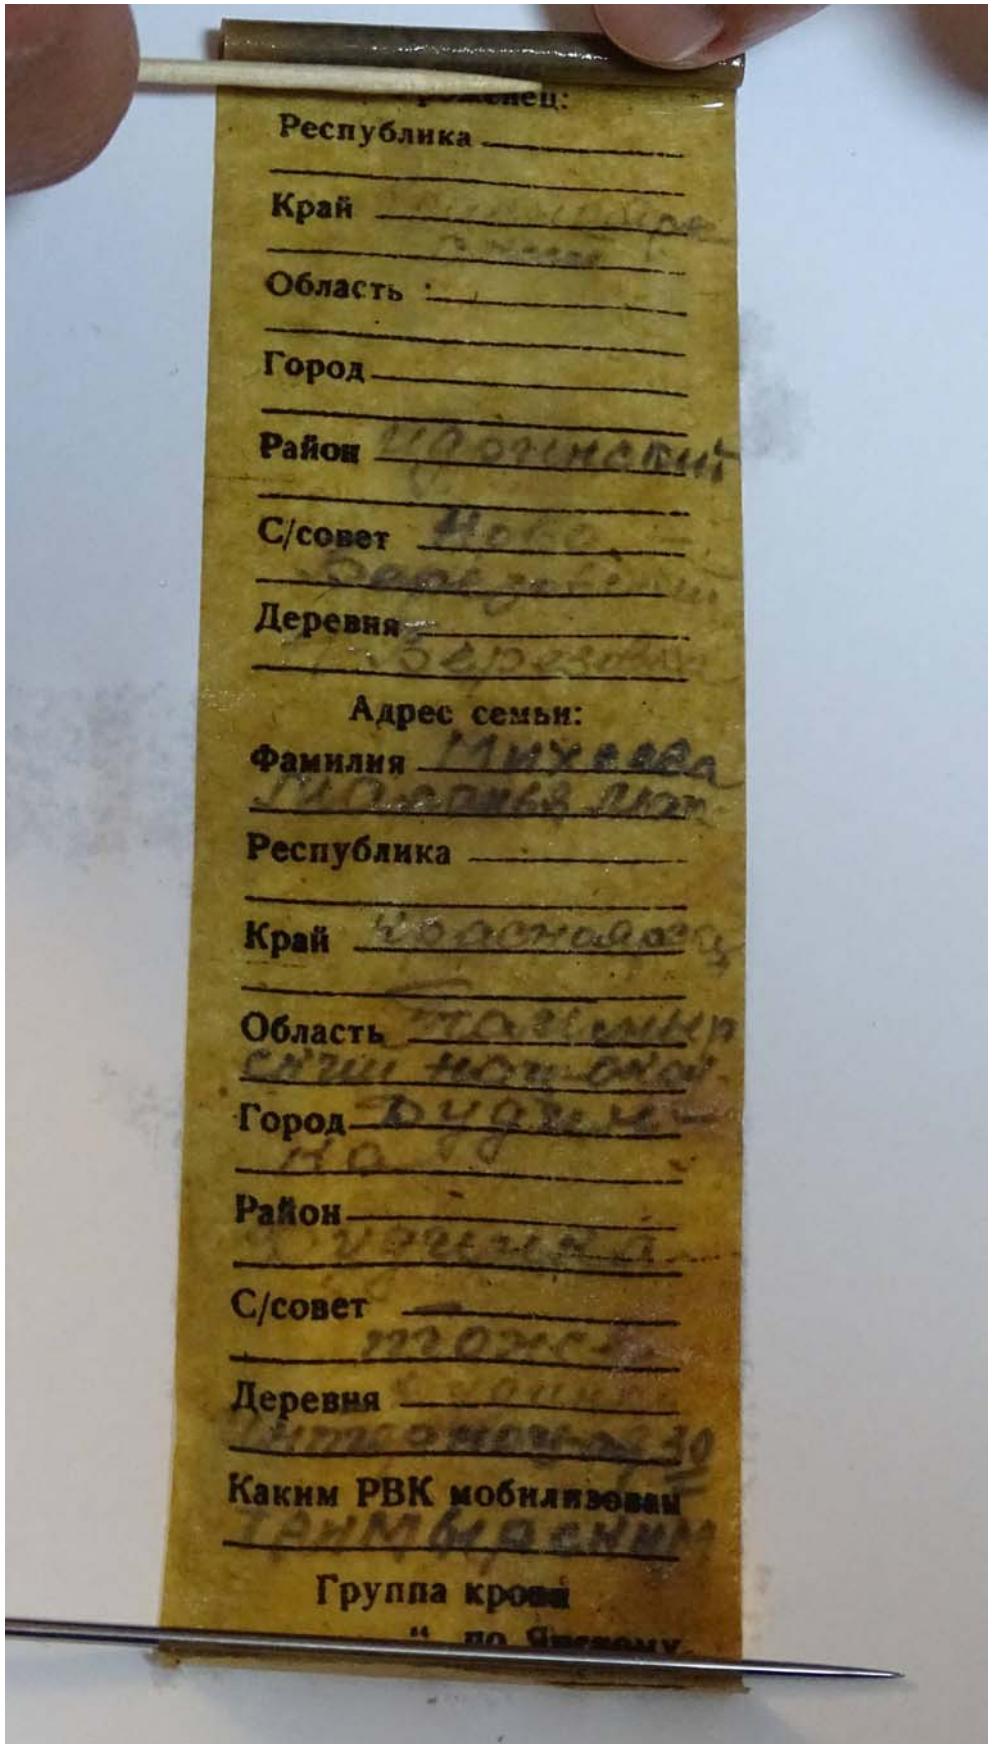 Уроженец:
Республика
Край
Область
Город
Район Идринский
С/совет Ново-
Березовский
Деревня
Березовка
Адрес семьи:
Фамилия Михеева
Маланья
Республика
Край Красноярс
Область Таймыр
ский нац окр
Город Дудин-
ка
Район
Дудинка
С/совет
тоже
Деревня
30
Каким РВК мобилизован
Таймырским
Группа крови
" по Янскому.